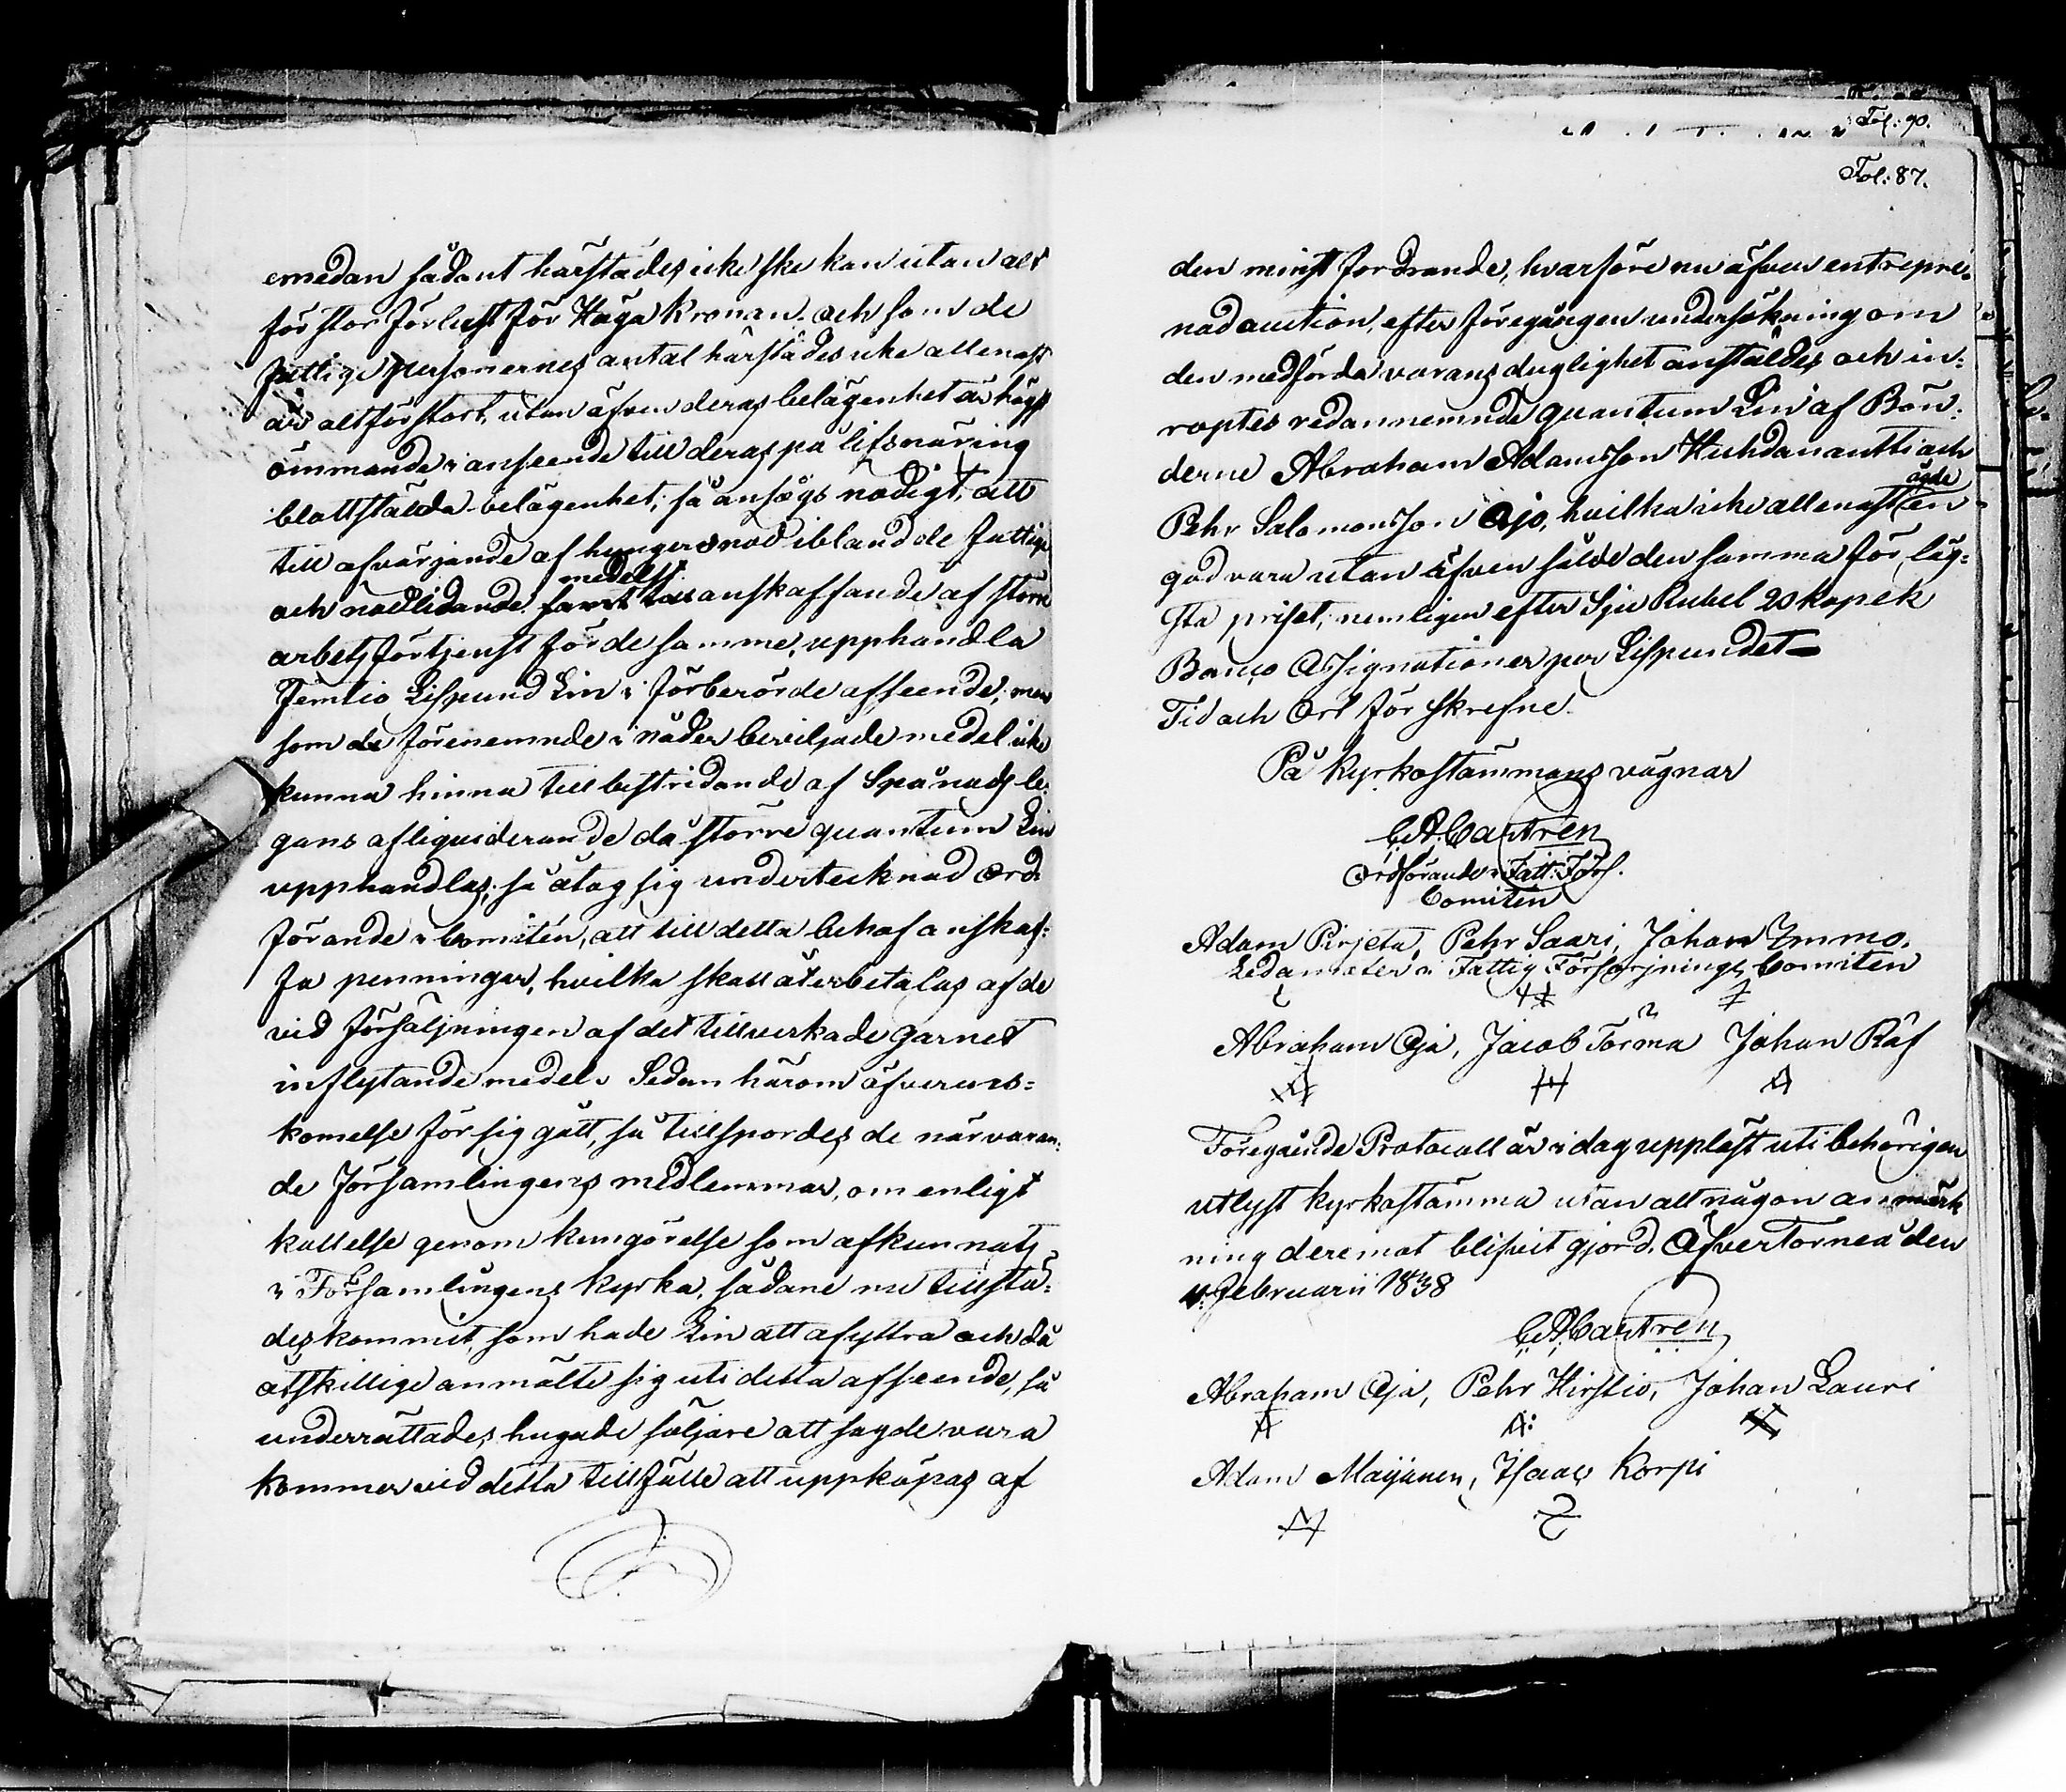 emedan sådant härstädes icke ske kan utan alt
för stor förlust för Höga Kronan. och som de
fattige personernes antal härstädes icke allenast
är altför stort, utan äfven deras belägenhet är högst
ömmande i anseende till deras på lifsnäring
blottstälda belägenhet; så ansågs nödigt, att
till afvärjande af hungersnöd ibland de fattige
och nödlidande medelst anskaffande af större
arbetsförtjenst för de samme, upphandla
Femtio Lispund Lin i förberörde afseende; men
som de förenemnde i nåder beviljade medel icke
kunna hinna till bestridande af Spånadsle-
gans afliquiderande då större quantum Lin
upphandlas; så åtog sig undertecknad Ord-
förande i Comitén, att till detta behof anskaf-
fa penningar, hvilka skall återbetalas af de
vid försäljningen af det tillverkade garnet
inflytande medel. Sedan härom öfverens=
komelse för sig gått, så tillspordes de närvaran-
de Församlingens medlemmar, om enligt
kallelse genom kungörelse som afkunnats
i Församlingens kyrka, sådane nu tillstä-
des kommit, som hade Lin att afyttra och då
åtskillige anmälte sig uti detta afseende, så
underrättades hugade säljare att sagde vara
kommer vid detta tillfälle att uppköpas af
Fol: 90.
Fol: 87.
den minst fordrande, hvarföre nu äfven entrepre-
nad auction, efter föregången undersökning om
den medförda varans duglighet anstäldes och in-
roptes redannemnde quantum Lin af Bön-
derne Abraham Adamsson Huhdanantti och
ägde
Pehr Salomonsson Ojo, hvilka icke allenast en
god vara utan äfven sålde den samma för läg-
sta priset, nemligen efter Sju Rubel 20 kopek
Banco Assignationer per Lispundet
Tid och Ort förskrefne.
På Kyrkostämmans vägnar
C.A. Castrén
Ordförande i Fatt: Förs.
Comitén
Adam Pirjeta, Pehr Saari, Johan Immo.
Ledamöter i Fattig Försörjnings Comiten
Abraham Oja, Jacob Törmä Johan Räf
Föregående Protocoll är i dag uppläst uti behörigen
utlyst kyrkostämma utan att någon anmärk
ning deremot blifvit gjord. Öfver Torneå den
4: Februarii 1838
C.A. Castrén
Abraham Oja, Pehr Hirstio, Johan Lauri
Adam Maijanen, Isaac Korpi